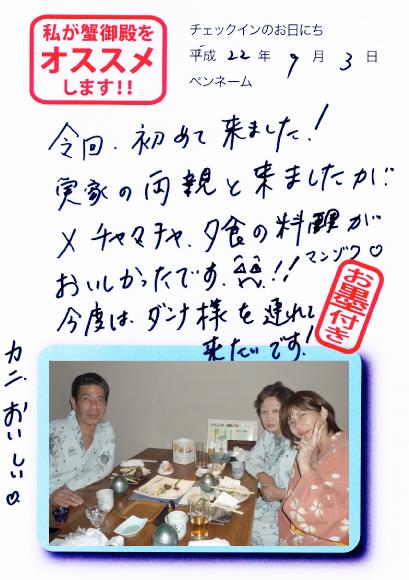 私が蟹御殿を
オススメ
します!!
チェックインのお日にち
平成 22 年 9 月 3 日
ペンネーム
今回、初めて来ました!
実家の両親と来ましたが、
メチャメチャ、夕食の料理が
おいしかったです。!! マンゾク♡
今度は、ダンナ様を連れて
来たいです!
お墨付き
カニ、おいしい♡